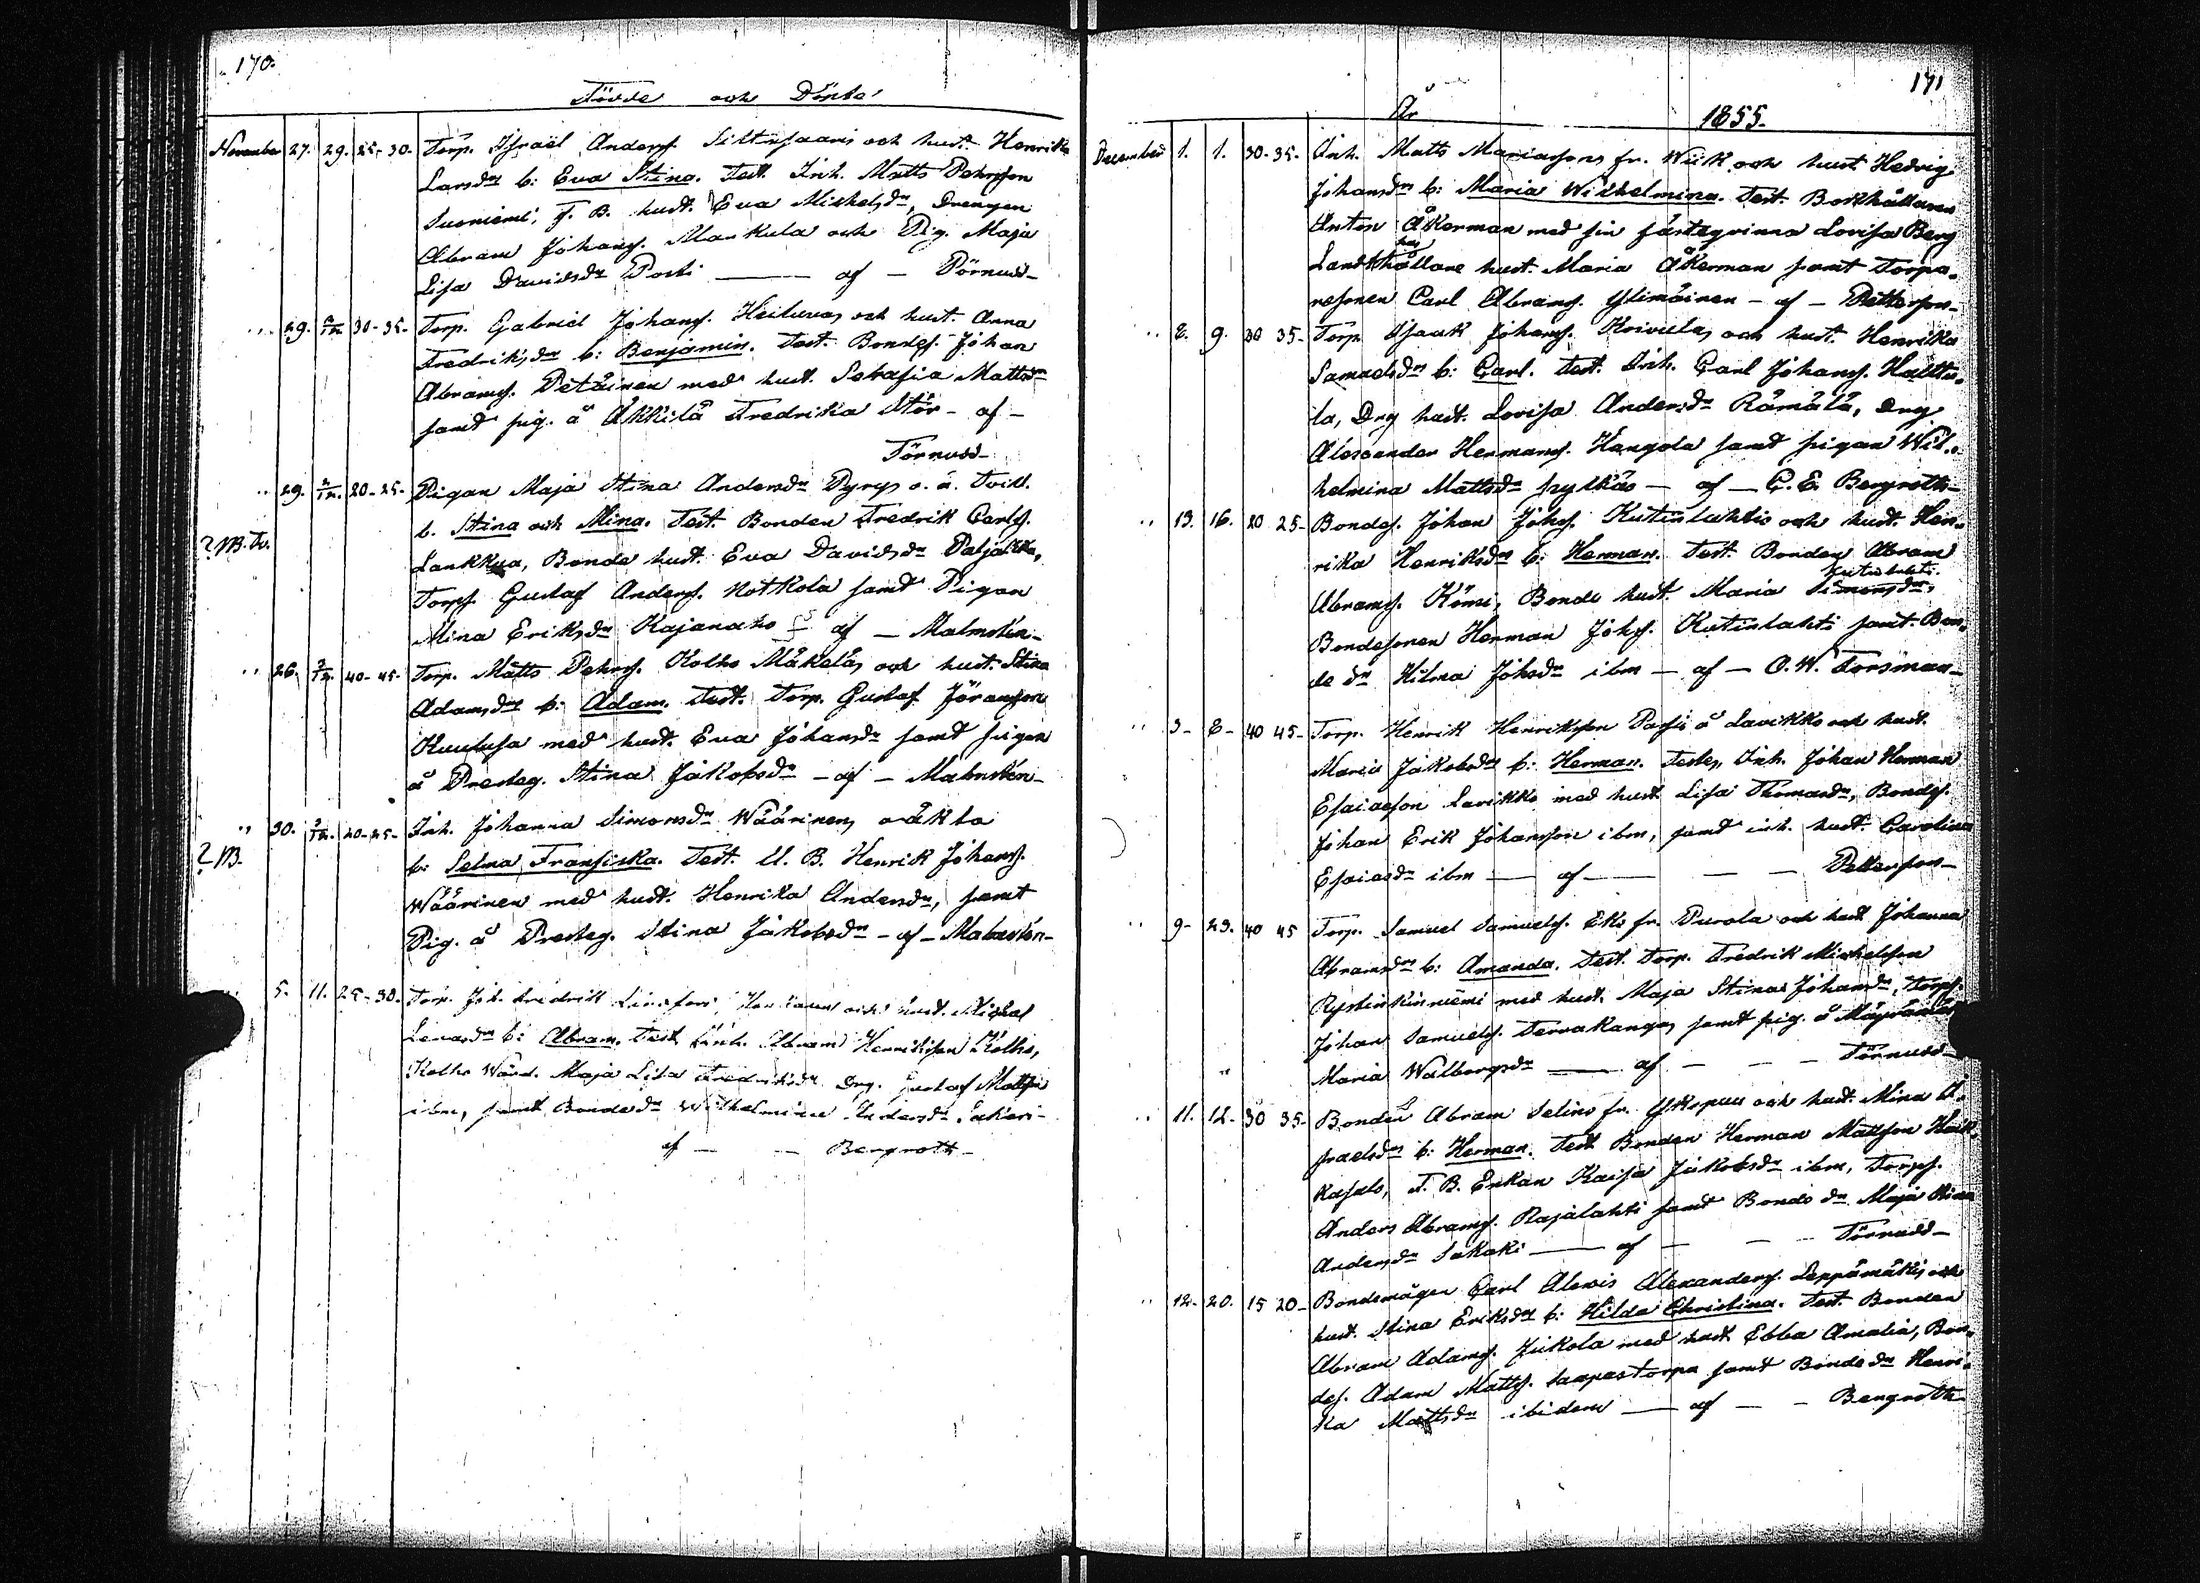 170.
Födde och Döpte
November 27. 29. 25-30. Torp. Israël Anders. Siltasaari och hust. Henrika
Larsdr b: Eva Stina. Test. Inh. Matts Pehrsson
Suoniemi, f. B. hust. Eva Mickelsdr, Drengen
Abram Johans. Markula och Pig. Maja
Lisa Davidsdr Posti — af — Törnudd-
" 29. 2/12. 30-35- Torp. Gabriel Johans. och hust. Anna
Fredriksdr b: Benjamin. Test. Bondes. Johan
Abrams. Petäinen med hust. Serafia Mattsdr
samt pig. å Äkkilä Fredrika Stör - af -
Törnudd-
" 29. 2/12. 20-25- Pigan Maja Stina Andersdr Pyrys o. ä. Tvill.
? M. Tv. b. Stina och Mina. Test. Bonden Fredrik Carls.
Bonde hust. Eva Davidsdr
Torps. Gustaf Anders. Notkola samt Pigan
Mina Eriksdr Kajanaho af — Malmstén-
" 26. 2/12. 40-45- Torp. Matts Pehrs. Kolho Mäkeläs och hust. Stina
Adamsdrs b: Adam. Test. Torp. Gustaf Göransson
med hust. Eva Johansdr samt pigan
å Presteg. Stina Jakobsdr - af - Malmstén-
" 30. 2/12. 20-25- Inh. Johanna Simonsdr Wäärinens oäkta
? M. b: Selma Fransiska. Test. U. B. Henrik Johans.
Wäärinen med hust. Henrika Andersdr, samt
Pig. å Presteg. Stina Jakobsdr - af - Malmstén-
5. 11. 25-30. Torp. Joh. Fredrik och hust. Mickel
b: Abram. Test. Inh. Abram Henriksson Kolho,
Kolho Wärd. Maja Lisa Fredriksdr Drg. Gustaf Mattss.
ibm, samt Bonde dr Wilhelmina Andersdr
af — — Bergroth-
171
År 1855.
December 1. 1. 30-35- Inh. Matts Mariassons fr. Wiik och hust. Hedvig
Johansdrs b: Maria Wilhelmina. Test. Bokhållaren
Anton Åkerman med sin fästeqvinna Lovisa Berg
hust. Maria Åkerman samt Torpa-
resonen Carl Abrams. Ylimäinen - af - Pettersson-
" 8. 9. 30 35- Torp. Isaak Johans. Koivulas och hust. Henrika
Samuelsdrs b: Carl. Test. Inh. Carl Johans. Haltto-
la, Drg hust. Lovisa Andersdr Rämälä, Drg
Alexander Hermans. Kangola samt pigan Wil-
helmina Mattsdr — af — C. E. Bergroth-
" 13. 16. 20 25- Bondes. Johan Johs. Kutinlahtis och hust. Hen-
rika Henriksdrs b: Herman. Test. Bonden Abram
Kutinlahti.
Abrams. Kömi, Bonde hust. Maria Simonsdr,
Bondesonen Herman Johs. Kutinlahti samt Bon-
de dr Hilma Johsdr ibm - af - O. W. Forsman-
" 3- 8- 40 45- Torp. Henrik Henriksson å Lavikko och hust.
Maria Jakobsdrs b: Herman. Testes, Inh. Johan Herman
Esaiasson Lavikko med hust. Lisa Thomasdr, Bondes.
Johan Erik Johansson ibm, samt inh. hust. Carolina
Esaiasdr ibm — af — — — Pettersson-
" 9- 23. 40 45 Torp. Samuel Samuels. Eks fr. Purola och hust. Johanna
Abramsdrs b: Amanda. Test. Torp. Fredrik Mickelsson
med hust. Maja Stina Johansdr, Torps.
Johan Samuels. Tervakangas samt pig. å
Maria Walborgsdr — af — — Törnudd-
" 11. 12- 30 35- Bonden Abram Selins fr. och hust. Mina I-
sraelsdrs b: Herman. Test. Bonden Herman Mattsson
F. B. Enkan Kaisa Jakobsdr ibm, Torps.
Anders Abrams. Rajalahti samt Bonde dr Maja Stina
Andersdr — af — — Törnudd-
" 12- 20. 15 20- Bondemågen Carl Alexis Alexanders. Leppämäkis och
hust. Stina Eriksdrs b: Hilda Christina. Test. Bonden
Abram Adams. Jukola med hust. Ebba Amalia, Bon-
des. Adam Matts. samt Bonde dr Henri-
ka Mattsdr ibidem — af — - Bergroth-